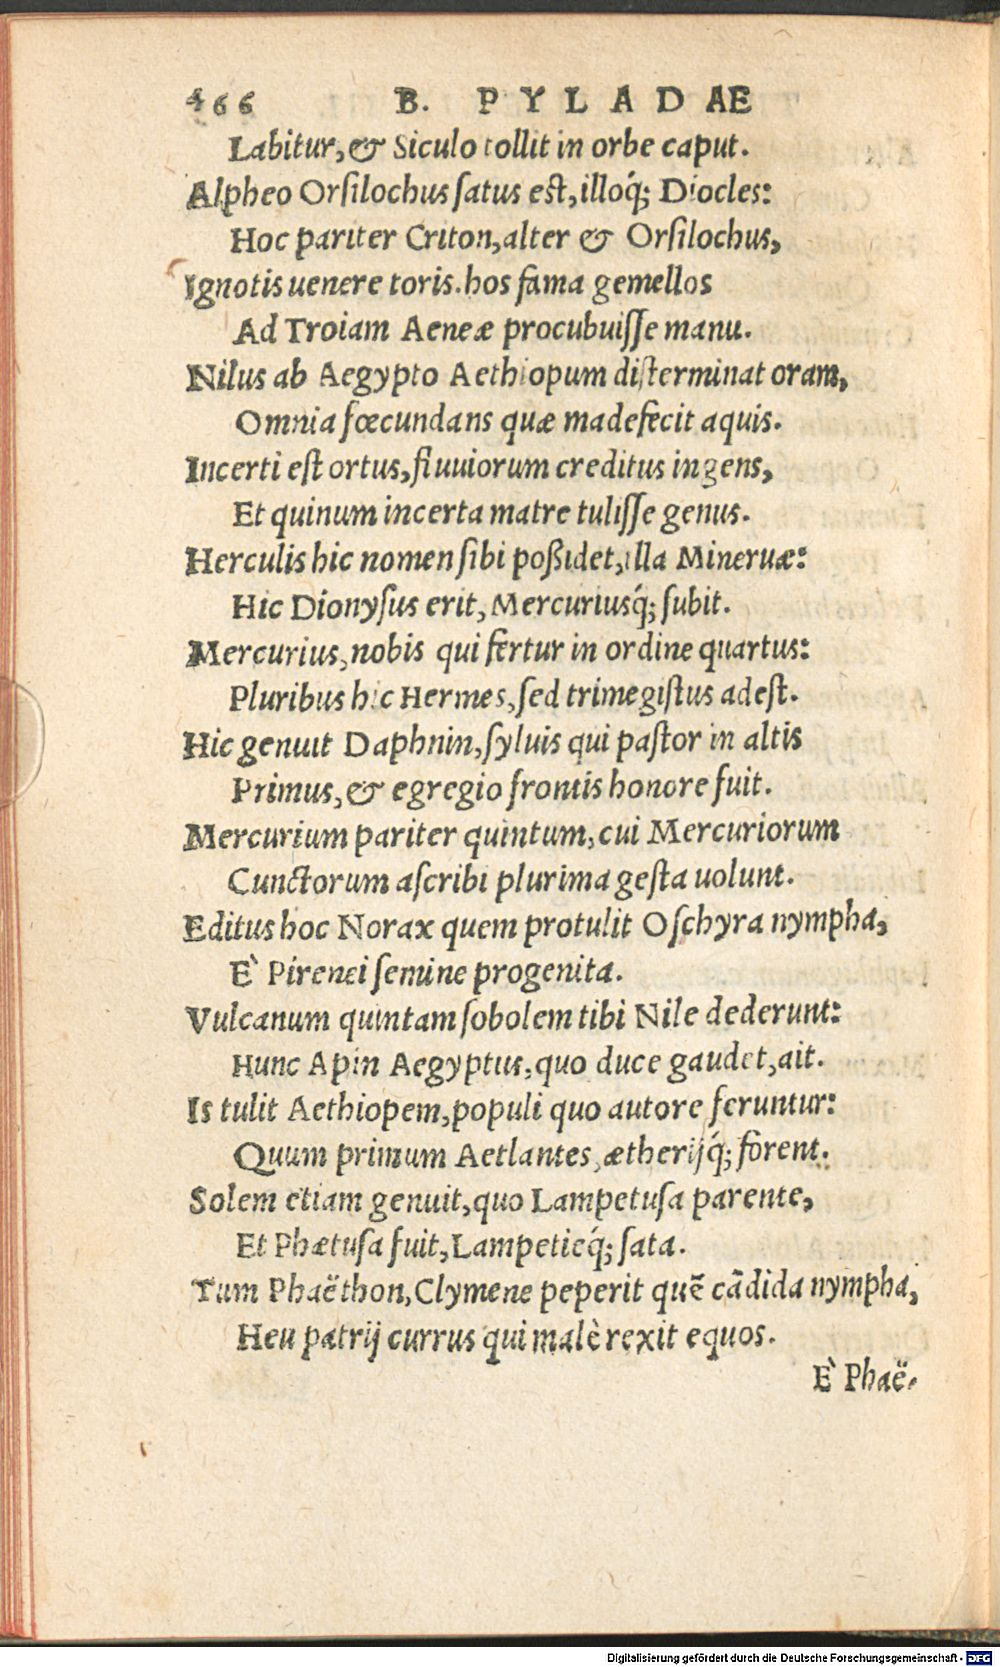 466 B. PYLADAE
Labitur, & Siculo tollit in orbe caput.
Alpheo Orsilochus satus est, illoq́; Diocles:
Hoc pariter Criton, alter & Orsilochus,
Ignotis uenere toris. hos fama gemellos
Ad Troiam Aeneæ procubuisse manu.
Nilus ab Aegypto Aethiopum disterminat oram,
Omnia fœcundans quæ madefecit aquis.
Incerti est ortus, fluuiorum creditus ingens,
Et quinum incerta matre tulisse genus.
Herculis hic nomen sibi poßidet, illa Mineruæ:
Hic Dionysus erit, Mercuriusq́; subit.
Mercurius, nobis qui fertur in ordine quartus:
Pluribus hic Hermes, sed trimegistus adest.
Hic genuit Daphnin, syluis qui pastor in altis
Primus, & egregio frontis honore fuit.
Mercurium pariter quintum, cui Mercuriorum
Cunctorum ascribi plurima gesta uolunt.
Editus hoc Norax quem protulit Oschyra nympha,
È Pirenei semine progenita.
Vulcanum quintam sobolem tibi Nile dederunt:
Hunc Apin Aegyptus, quo duce gaudet, ait.
Is tulit Aethiopem, populi quo autore feruntur:
Quum primum Aetlantes, ætherijq́; forent.
Solem etiam genuit, quo Lampetusa parente,
Et Phætusa fuit, Lampeticq́; sata.
Tum Phaëthon, Clymene peperit quē cādida nympha,
Heu patrij currus qui malè rexit equos.
È Phaë-
Digitalisierung gefördert durch die Deutsche Forschungsgemeinschaft - DFG